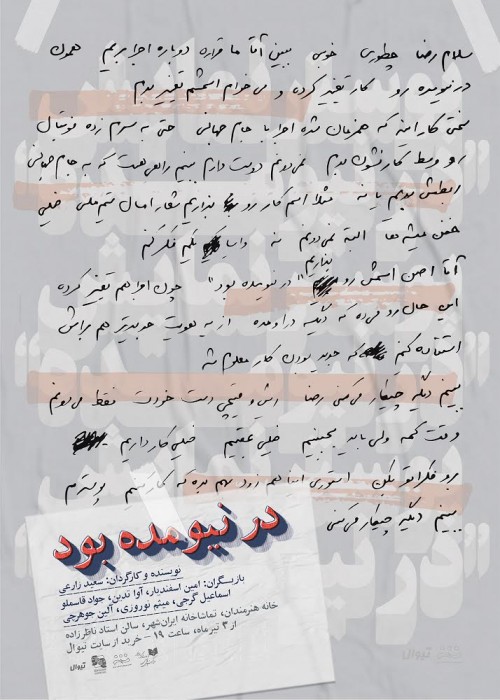 سلام رضا چطوری خوبی ببین آقا ما قراره دوباره اجرا بریم همون
در نیومده رو کار تغییر کرده و می خوام اسمشم تغییر بدم
سختی کار اینه که همزمان شده اجرا با جام جهانی حتی به سرم زده فوتبال
رو وسط کار نشون بدم نمی دونم دوست دارم ببینم راهی هست که به جام جهانی
ربطش بدیم یا نه مثلا اسم کار رو بذاریم شعار امسال تیم ملی خیلی
خفن میشه ها البته نمی دونم نه وایسا بگم فکر کنم
بذاریم
آقا اصن اسمش رو "در نیومده بود" چون اجرا هم تغییر کرده
این حال رو می ده که دیگه در اومده از یه هویت جدیدتر هم براش
استفاده کنیم که جدید بودن کار معلوم شه
ببینم دیگه چیکار می کنی رضا ریش و قیچی دست خودت فقط می دونم
وقت کمه ولی باید بجنبیم خیلی عقبیم خیلی کار داریم
برو فکراتو بکن استوری اینا هم زود بهم بده که کار کنیم پوسترم
ببینم دیگه چیکار می کنی
در نیومده بود
نویسنده و کارگردان: سعید زارعی
بازیگران: امین اسفندیار، آوا تدین، جواد قاسملو
اسماعیل گرجی، میثم نوروزی، آلین جوهرچی
خانه هنرمندان، تماشاخانه ایران‌شهر، سالن استاد ناظرزاده
از ۳ تیرماه، ساعت ۱۹ - خرید از سایت تیوال
تیوال
تیوال